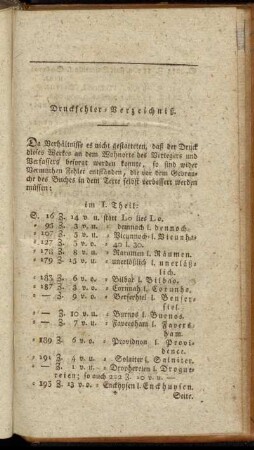 Druckfehler-Verzeichniß.
Da Verhältnisse es nicht gestatteten, daß der Druck
dieses Werkes an dem Wohnorte des Verlegers und
Verfassers besorgt werden konnte, so sind wider
Vermuthen Fehler entstanden, die vor dem Gebrau-
che des Buches in dem Texte selbst verbessert werden
müssen:
im I. Theil:
S. 16 Z. 14 v. u. statt Lo lies Lo.
» 96 Z. 3 v. u. » demnach l. dennoch.
» 107 Z. 3 v. u. » Vicunnoch l. Vicunha.
» 127 Z. 5 v. u. » 40 l. 30.
» 178 Z. 8 v. u. » Naräumen l. Räumen.
» 179 Z. v. u. » unerlößlich l. unerläß-
lich.
» 183 Z. 6 v. u. » Bilbaf l. Bilbao.
» 187 Z. 3 v. u. » l. Corunha.
» — Z. 9 v. u. » l.
» — Z. 10 v. u. » Burnos l. Buenos.
» — Z. 7 v. u. » Faversham l. Favers-
ham.
» 190 Z. 6 v. u. » l. Provi-
dence.
» 191 Z. 4 v. u. » Solniter l. Salniter.
» — Z. 1 v. u. » Drophereien l. Drogue-
reien; so auch 222 Z. 10 v. u.
» 195 Z. 13 v. o. » Enckhysen l. Enckhuysen.
Seite.